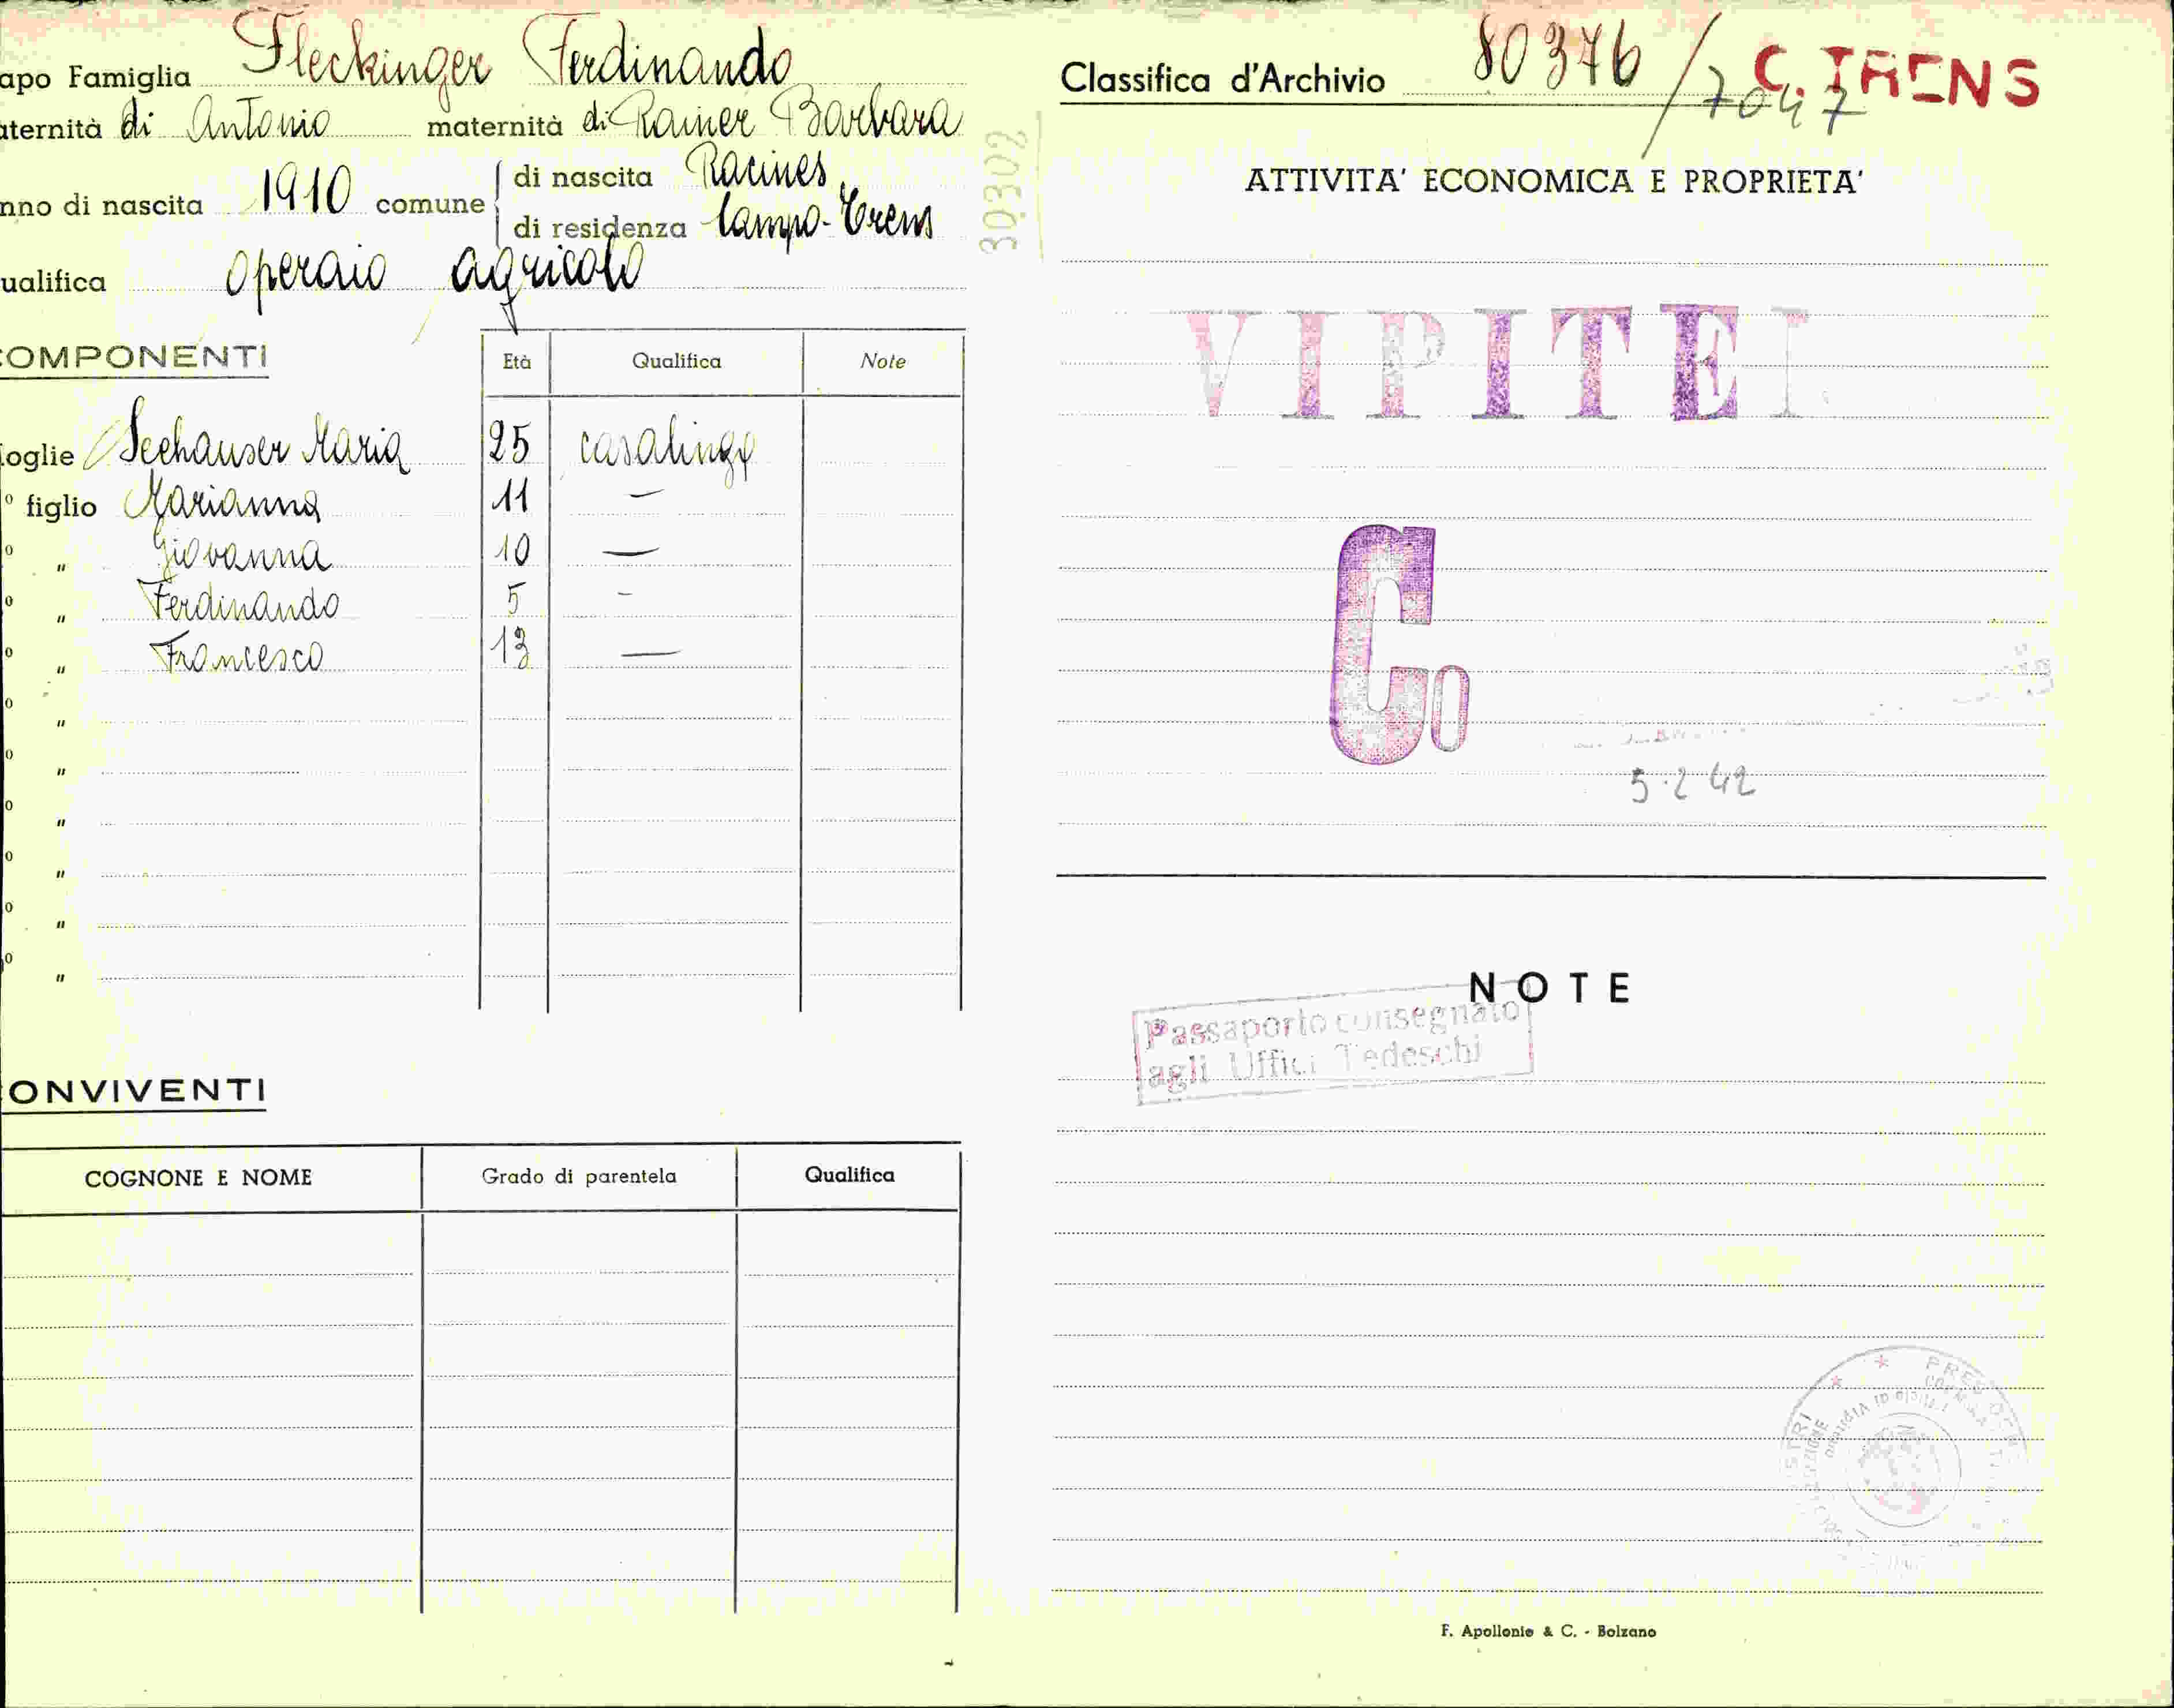 apo Famiglia Fleckinger Ferdinando
aternità di Antonio maternità di Rainer Barbara
nno di nascita 1910 comune di nascita Racines
di residenza Campo-Trens
ualifica operaio agricolo
COMPONENTI Età Qualifica Note
oglie Seehauser Maria 25 casalinga
° figlio Marianna 11 —
° " Giovanna 10 —
° " Ferdinando 5 -
° " Francesco 13 —
° "
° "
° "
° "
° "
° "
ONVIVENTI
COGNONE E NOME Grado di parentela Qualifica
30302
Classifica d'Archivio 80376 / 7047 C. TRENS
ATTIVITA' ECONOMICA E PROPRIETA'
VIPITE
Co
5.2 42
NOTE
Passaporto consegnato
agli Uffici Tedeschi
F. Apollonio & C. - Bolzano